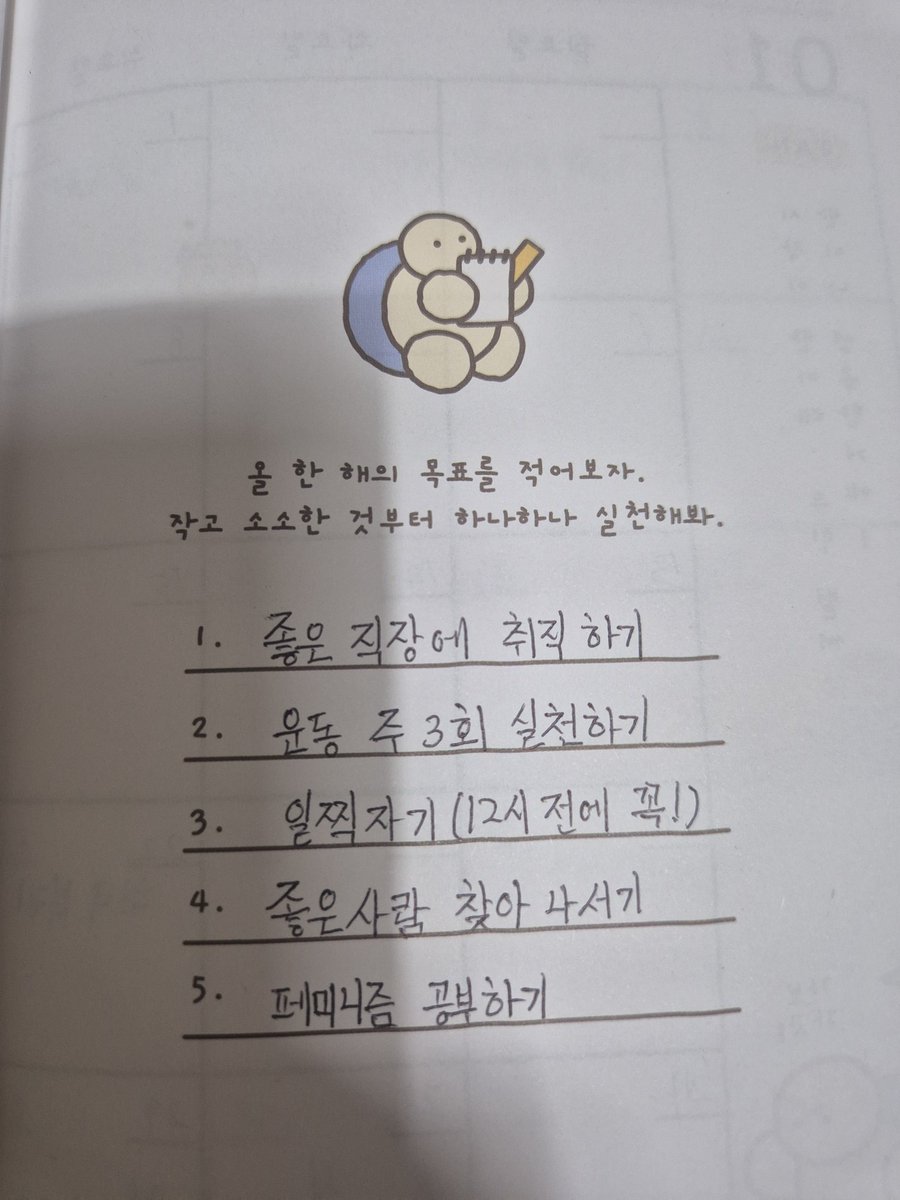 올 한 해의 목표를 적어보자.
작고 소소한 것부터 하나하나 실천해봐.
1. 좋은 직장에 취직하기
2. 운동 주 3회 실천하기
3. 일찍자기 (12시 전에 꼭!)
4. 좋은사람 찾아 나서기
5. 페미니즘 공부하기